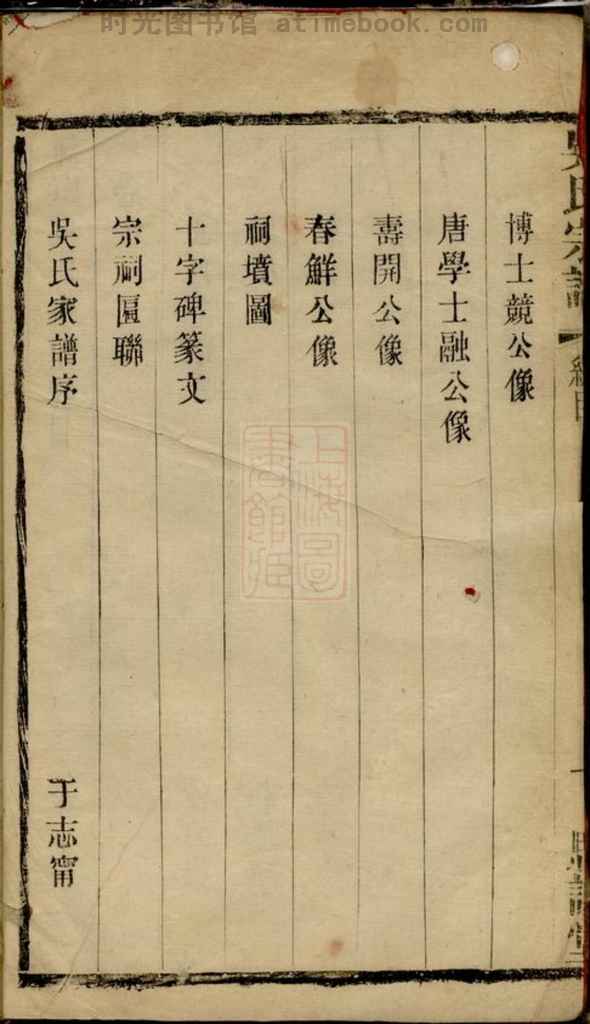 时光图书馆 atimebook.com
博士競公像
唐學士融公像
壽開公像
春鮮公像
祠墳圖
十字碑篆文
宗祠匾聯
吳氏家譜序 于志甯